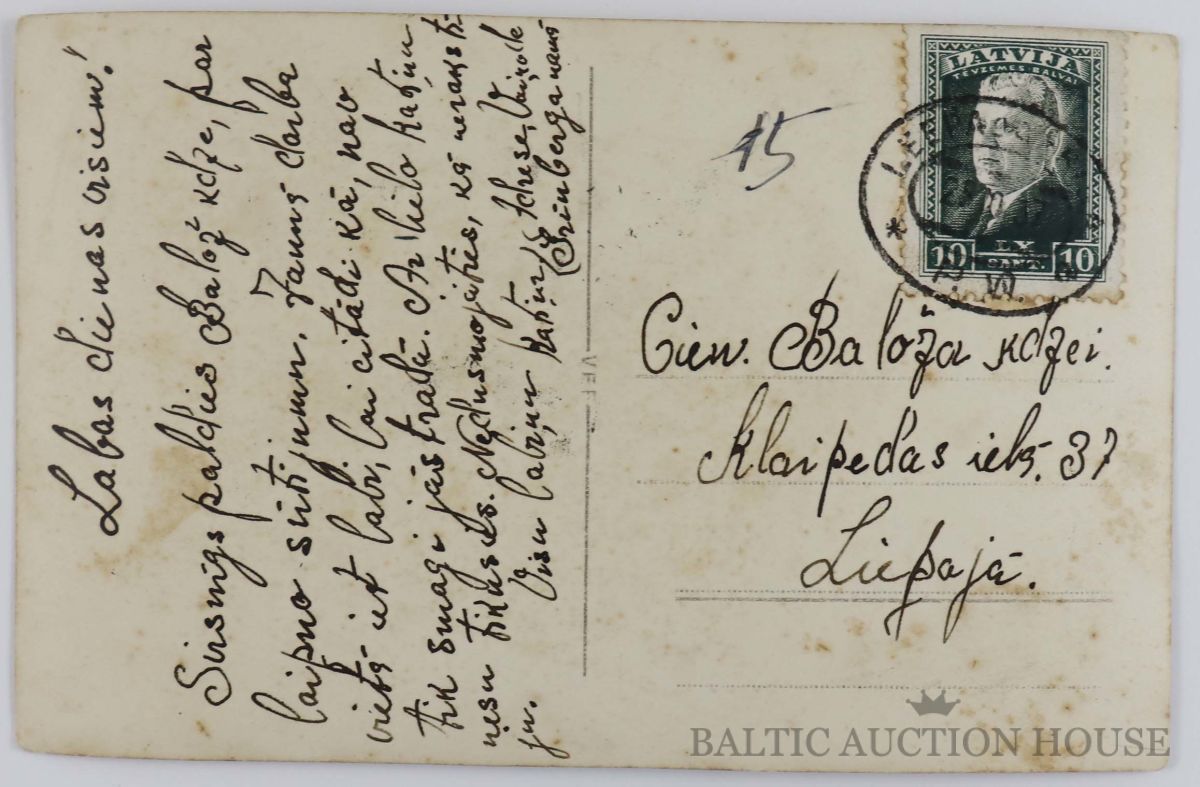 Labas dienas visiem!
Sirsnīgs paldies Balož kdze, par
laipno sūtījumu. Jaunā darba
vietā iet labi, lai citādi kā, nav
tik smagi jāstrādā. Ar bēlo
nesu tikusies. Nedusmojaties, kā nerakstī-
ju. Visu labiņu Katiņ
Adrese, Vaiņode
Grinberga namā
VEF
15
LATVIJA
TĒVZEMES BALVAI
10 LX SANT. 10
Cien. Baloža kdzei.
Klaipedas ielā. 37
Liepajā.
BALTIC AUCTION HOUSE